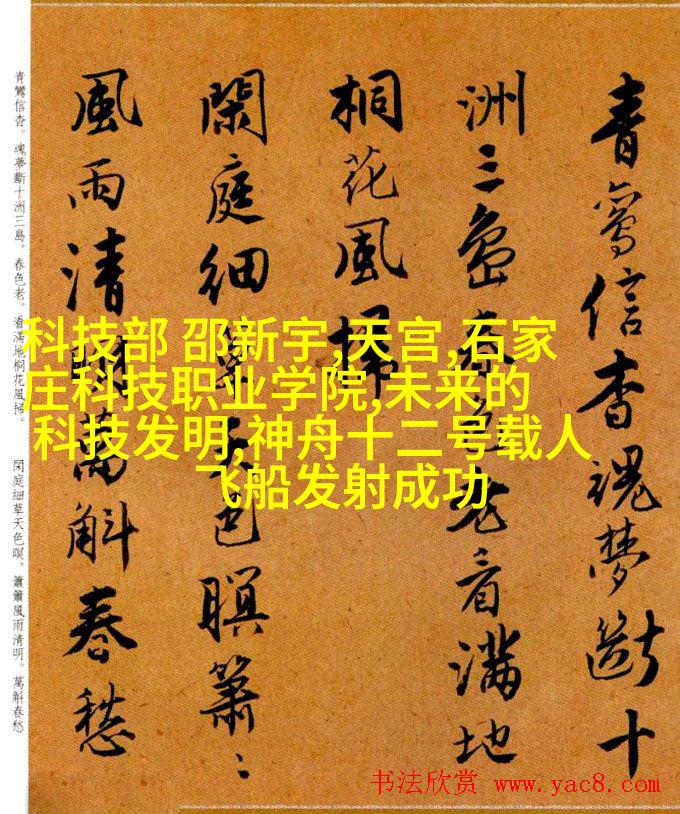 青鸞信杳魂夢斷十
洲三島春色老看滿地
桐花風掃
閑庭細草天色暝簫〻
風雨清明萬斛春愁
青鸞信杳。魂夢斷十洲三島。春色老。看滿地桐花風掃。 閑庭細草天色暝。簫簫風雨清明。萬斛春愁
科技部 邵新宇,天宫,石家
庄科技职业学院,未来的
科技发明,神舟十二号载人
飞船发射成功
书法欣赏 www.yac8.com